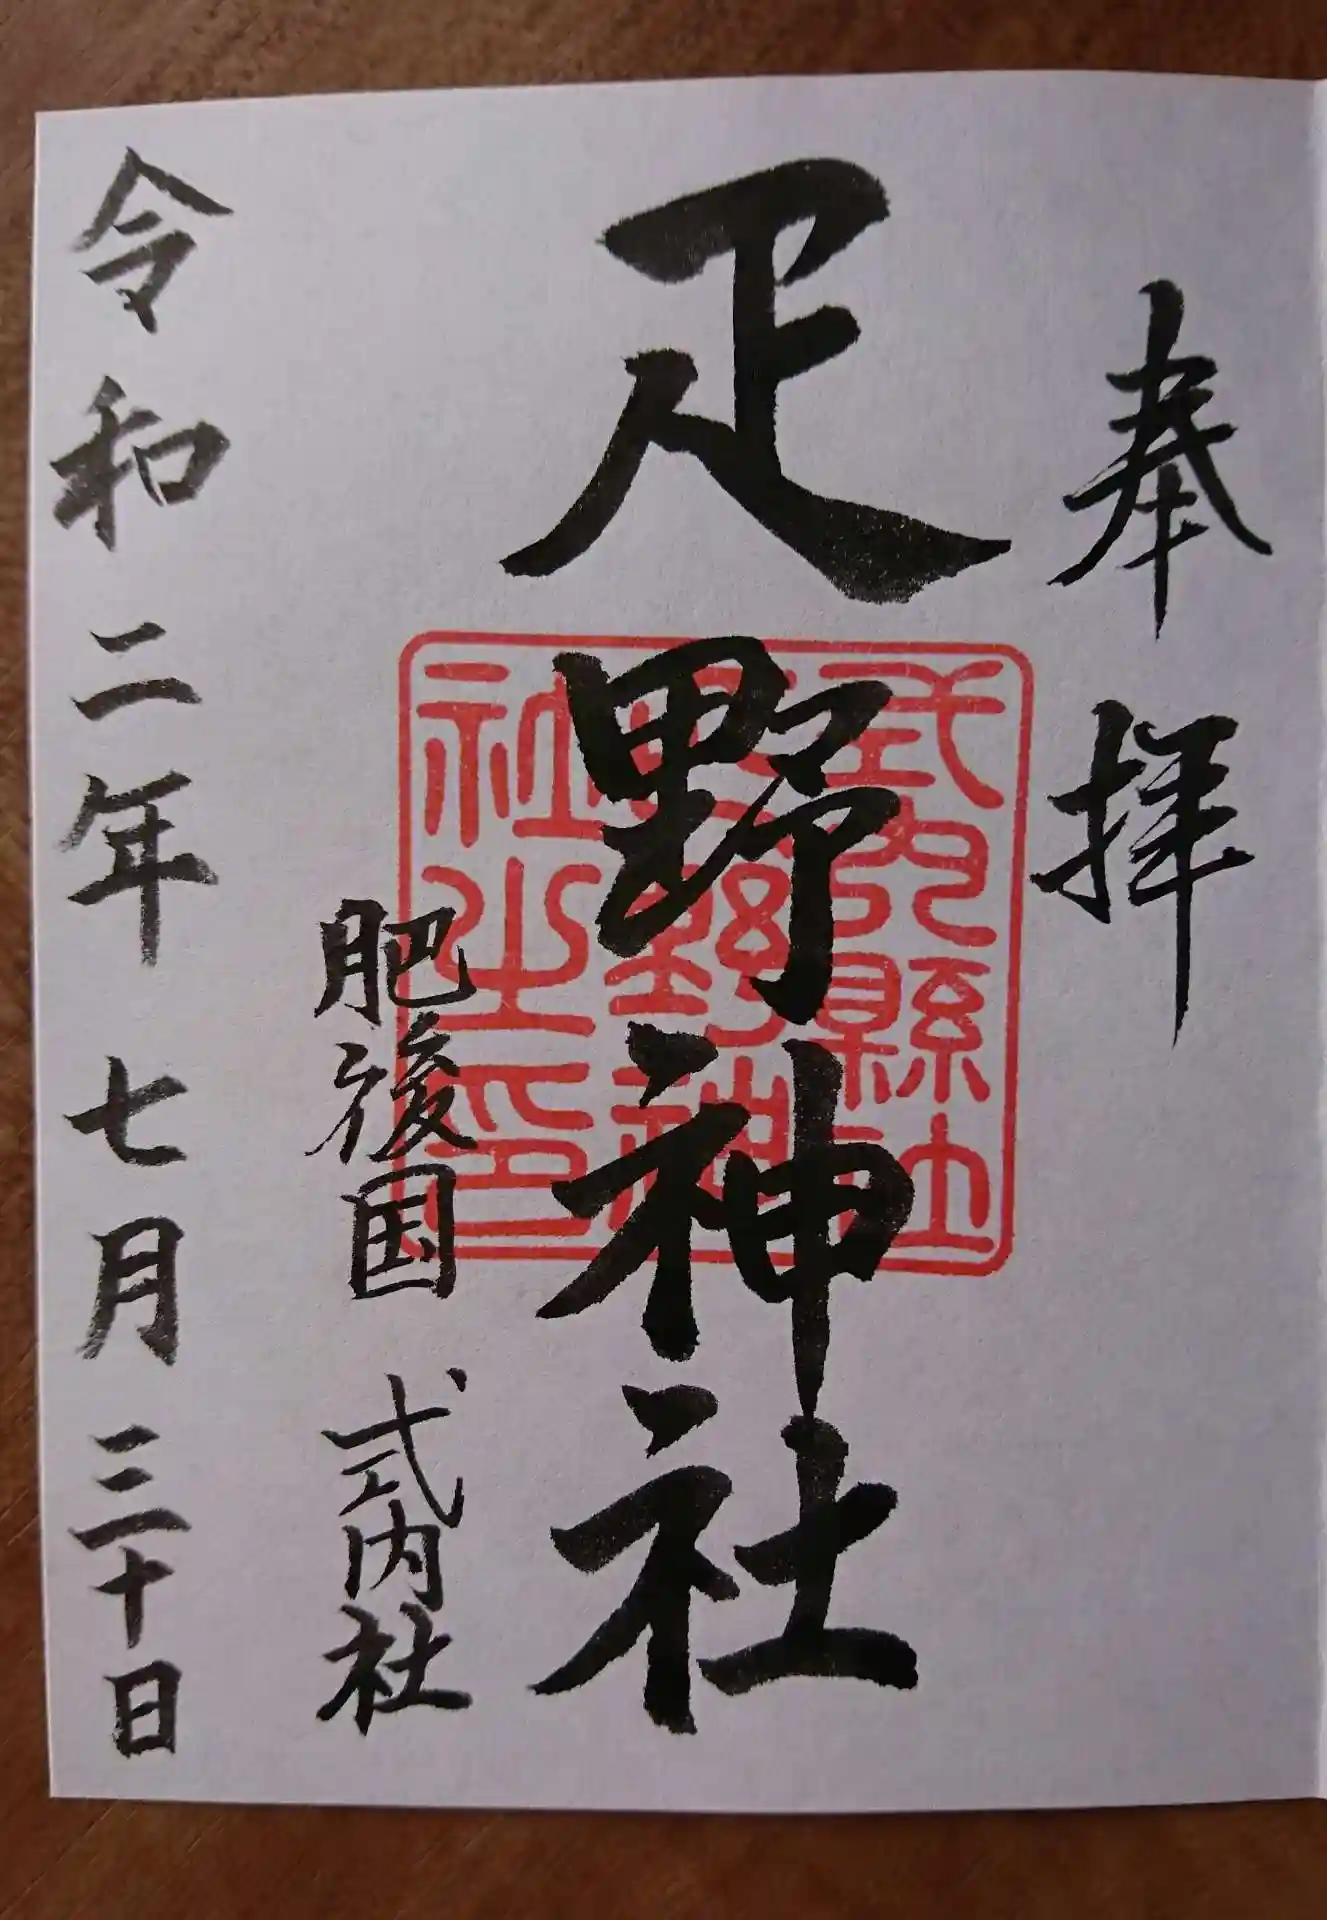 奉拝
疋野神社
式内縣社
疋野神
社之印
肥後国 式内社
令和二年七月三十日